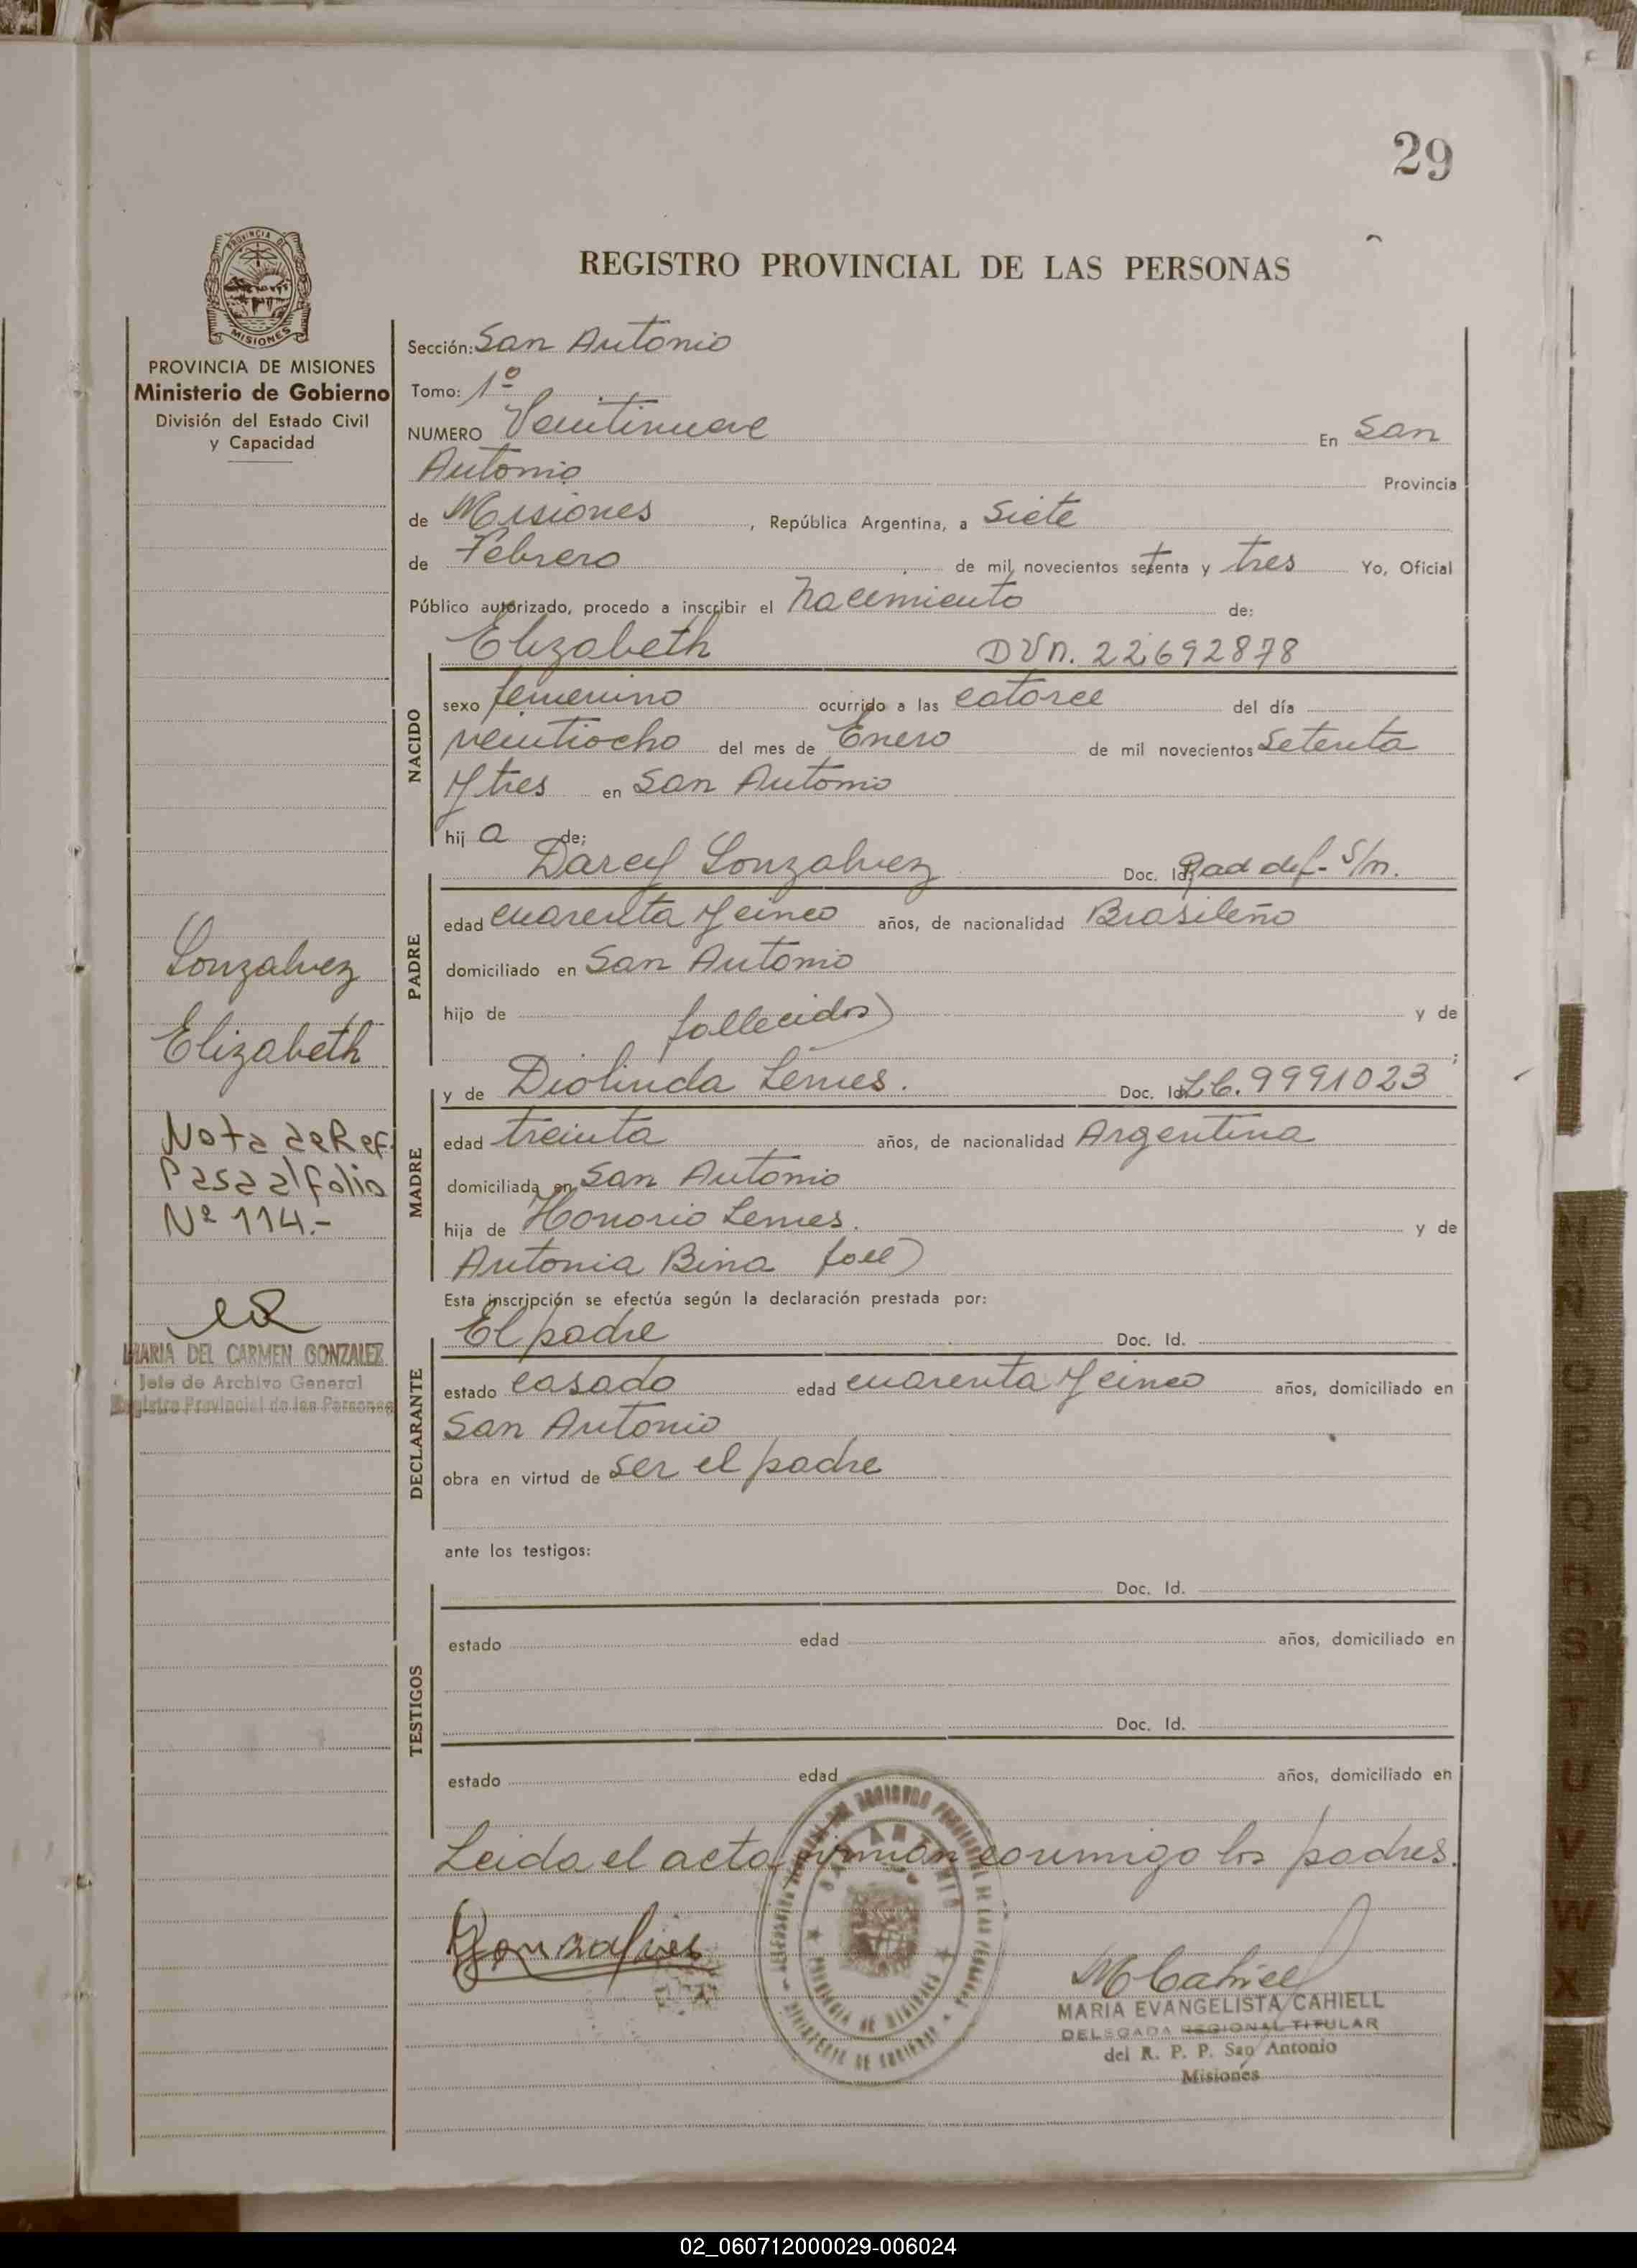 29
REGISTRO PROVINCIAL DE LAS PERSONAS
PROVINCIA DE MISIONES
PROVINCIA DE MISIONES
Ministerio de Gobierno
División del Estado Civil
y Capacidad
Sección: San Antonio
Tomo: 1º
NUMERO Veintinueve En San
Antonio Provincia
de Misiones, República Argentina, a Siete
de Febrero de mil novecientos setenta y tres Yo, Oficial
Público autorizado, procedo a inscribir el nacimiento de:
Elizabeth DUN. 22692878
NACIDO
sexo femenino ocurrido a las catorce del día
veintiocho del mes de Enero de mil novecientos setenta
y tres en San Antonio
hija de;
Darcy Gonzalvez Doc. Id. Rad def- S/m.
PADRE
edad cuarenta y cinco años, de nacionalidad Brasileño
domiciliado en San Antonio
hijo de fallecidos) y de
;
y de Diolinda Lemes. Doc. Id. L.C. 9991023
MADRE
edad treinta años, de nacionalidad Argentina
domiciliada en San Antonio
hija de Honorio Lemes. y de
Antonia Bina fall)
Esta inscripción se efectúa según la declaración prestada por:
El padre Doc. Id.
DECLARANTE
estado casado edad cuarenta y cinco años, domiciliado en
San Antonio
obra en virtud de ser el padre
ante los testigos:
Doc. Id.
TESTIGOS
estado edad años, domiciliado en
Doc. Id.
estado edad años, domiciliado en
Leida el acta firman conmigo los padres.
Gonzalves
MCahiell
MARIA EVANGELISTA CAHIELL
DELEGADA REGIONAL TITULAR
del R. P. P. San Antonio
Misiones
Gonzalvez
Elizabeth
Nota de Ref.
Pasa al folio
Nº 114.-
MARIA DEL CARMEN GONZALEZ
Jefe de Archivo General
Registro Provincial de las Personas
N
O
P
Q
R
S
T
U
V
W
X
02_060712000029-006024